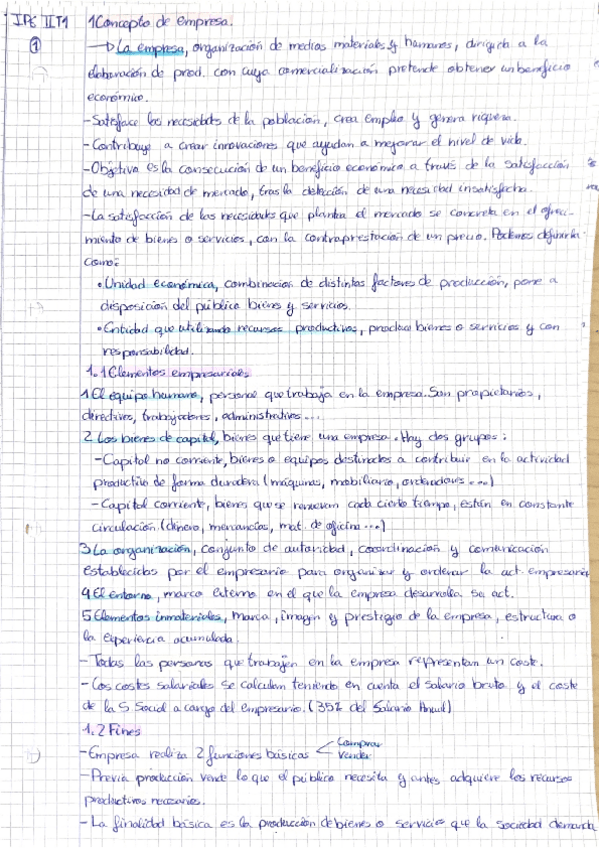 IPE II T1
1
1 Concepto de empresa.
→ La empresa, organización de medios materiales y humanos, dirigida a la
elaboración de prod. con cuya comercialización pretende obtener un beneficio
económico.
- Satisface las necesidades de la población, crea empleo y genera riqueza.
- Contribuye a crear innovaciones que ayudan a mejorar el nivel de vida.
- Objetivo es la consecución de un beneficio económico a través de la satisfacción
de una necesidad de mercado, tras la detección de una necesidad insatisfecha.
- La satisfacción de las necesidades que plantea el mercado se concreta en el ofreci-
miento de bienes o servicios, con la contraprestación de un precio. Podemos definirla
como:
• Unidad económica, combinación de distintos factores de producción, pone a
disposición del público bienes y servicios.
• Entidad que utilizando recursos productivos, produce bienes o servicios y con
responsabilidad.
1.1 Elementos empresariales
1 El equipo humano, personal que trabaja en la empresa. Son propietarios,
directivos, trabajadores, administrativos...
2 Los bienes de capital, bienes que tiene una empresa. Hay dos grupos:
- Capital no corriente, bienes o equipos destinados a contribuir en la actividad
productiva de forma duradera (maquinas, mobiliario, ordenadores...)
- Capital corriente, bienes que se renuevan cada cierto tiempo, están en constante
circulación. (dinero, mercancías, mat. de oficina...)
3 La organización, conjunto de autoridad, coordinación y comunicación
establecidas por el empresario para organizar y ordenar la act. empresarial
4 El entorno, marco externo en el que la empresa desarrolla su act.
5 Elementos inmateriales, marca, imagen y prestigio de la empresa, estructura o
la experiencia acumulada.
- Todas las personas que trabajen en la empresa representan un coste.
- Los costes salariales se calculan teniendo en cuenta el salario bruto y el coste
de la S Social a cargo del empresario. (35% del Salario Anual)
1.2 Fines
- Empresa realiza 2 funciones básicas < Comprar
Vender
- Previa producción vende lo que el público necesita y antes, adquiere los recursos
productivos necesarios.
- La finalidad básica es la producción de bienes o servicios que la sociedad demanda